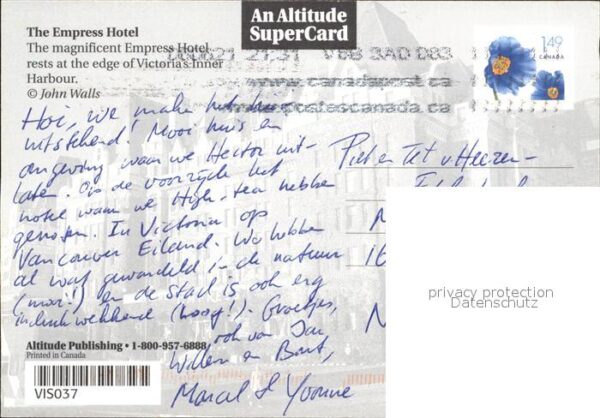 An Altitude
SuperCard
The Empress Hotel
The magnificent Empress Hotel
rests at the edge of Victoria's Inner
Harbour.
© John Walls
1.49
CANADA
V8B 3A0 083
www.canadapost.ca
postescanada.ca
Hoi, we maken het hier
uitstekend! Mooi huis en
omgeving waar we Hector uit-
laten. Op de voorzijde het
hotel waar we High-tea hebben
genoten. In Victoria op
Vancouver Eiland. We hebben
al wat gewandeld in de natuur
(mooi!) en de stad is ook erg
indrukwekkend (hoog!). Groetjes,
ook van Jan
Willem en Bart,
Marcel & Yvonne
Piet en
privacy protection
Datenschutz
Altitude Publishing • 1-800-957-6888
Printed in Canada
VIS037